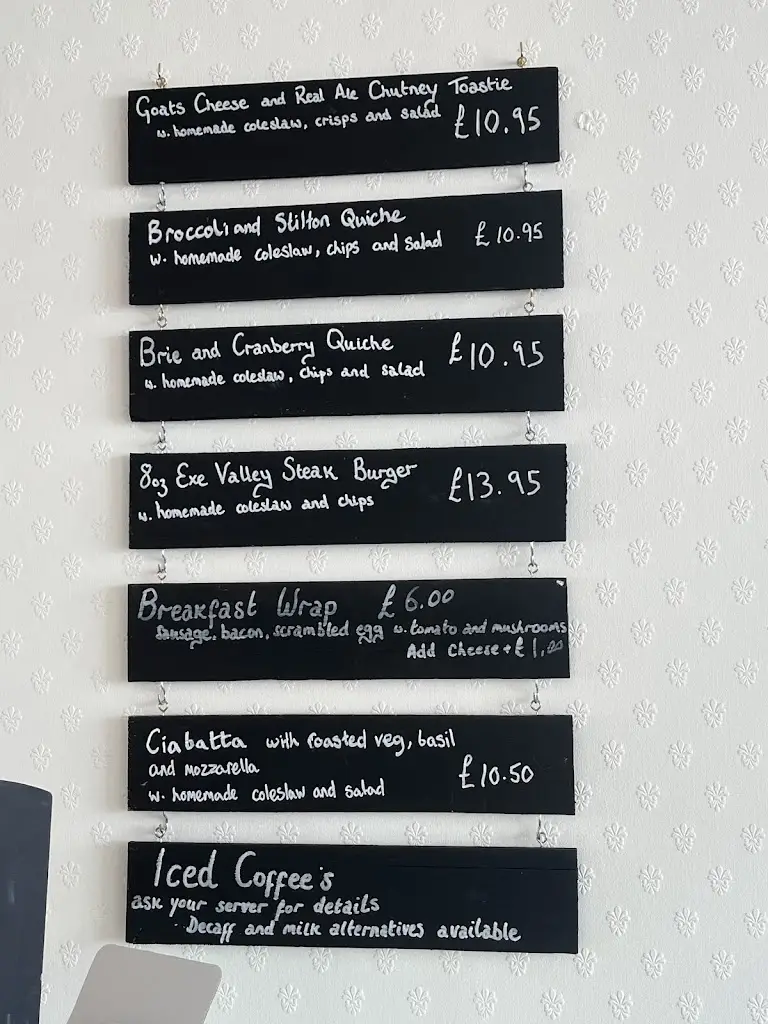 Goats Cheese and Real Ale Chutney Toastie
w. homemade coleslaw, crisps and salad
£10.95
Broccoli and Stilton Quiche
w. homemade coleslaw, chips and salad
£10.95
Brie and Cranberry Quiche
w. homemade coleslaw, chips and salad
£10.95
8oz Exe Valley Steak Burger
w. homemade coleslaw and chips
£13.95
Breakfast Wrap £6.00
sausage, bacon, scrambled egg w. tomato and mushrooms
Add Cheese + £1.00
Ciabatta with roasted veg, basil
and mozzarella
w. homemade coleslaw and salad
£10.50
Iced Coffee's
ask your server for details
Decaff and milk alternatives available